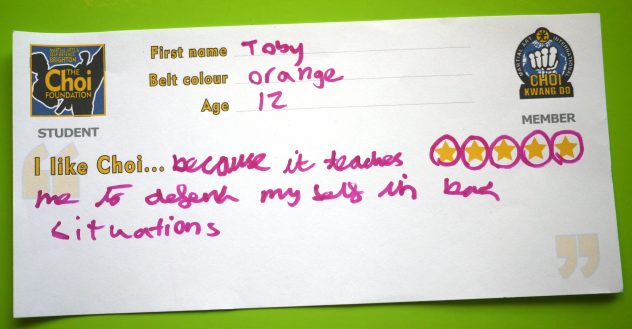 MARTIAL ARTS
BRIGHTON
THE
Choi
FOUNDATION
STUDENT
First name Toby
Belt colour orange
Age 12
MARTIAL ART INTERNATIONAL
CHOI
KWANG DO
MEMBER
I like Choi... because it teaches
me to defend my self in bad
situations